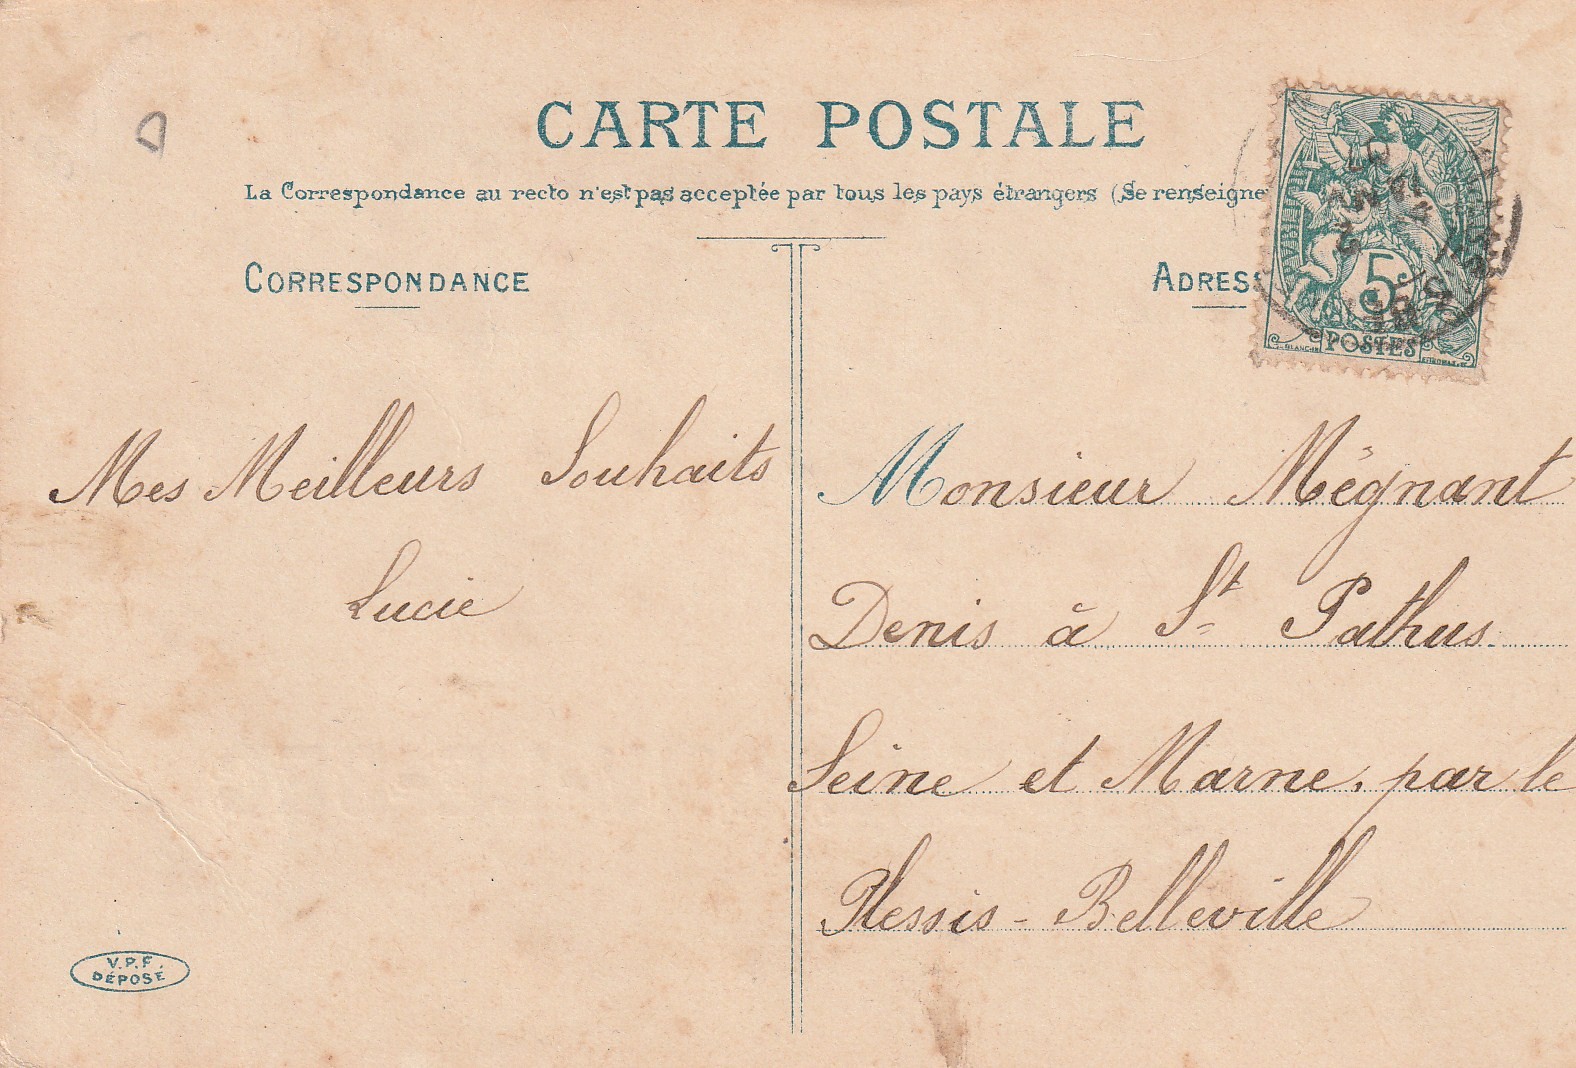 CARTE POSTALE
La Correspondance au recto n'est pas acceptée par tous les pays étrangers (Se renseigne
CORRESPONDANCE
ADRES
REPUBLIQUE FRANÇAISE
5c
POSTES
Mes Meilleurs Souhaits
Lucie
Monsieur Mégnant
Denis à St Pathus.
Seine et Marne, par le
Plessis-Belleville
V.P.F.
DÉPOSÉ